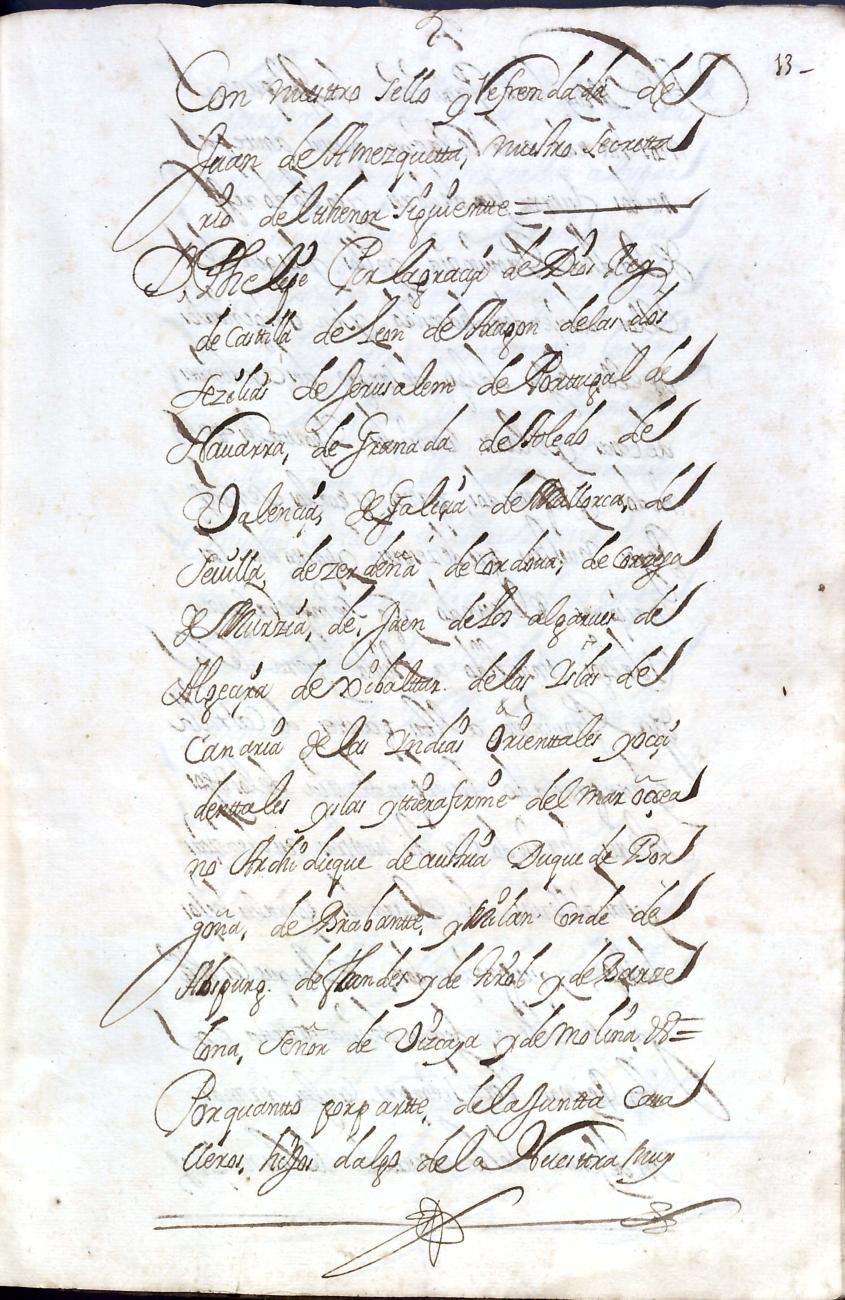 13
Con nuestro sello y Refrendada de
Juan de Amezquetta, nuestro Secretta
rio del thenor siguientte =
D. Phelipe Por la gracia de Dios Rey
de Castilla de Leon de Aragon de las dos
Sezilias de Jerusalem de Porttugal de
Navarra, de Granada de Toledo de
Valencia, de Galicia de Mallorca, de
Sevilla, de zerdeña de Cordova, de Corzega
de Murzia, de Jaen de los algarves de
Algecira de Xibralttar. de las Yslas de
Canaria de las Yndias Orienttales y oçi
denttales yslas y ttierafirme del mar oçea
no Archiduque de austria Duque de Bor
goña, de Brabantte, y Milan Conde de
Abspurg. de flandes y de tirol y de Barze
lona, Señor de Vizcaya y de Molina &ª =
Por quantto por partte, de la Juntta Cava
lleros, hijos dalgo de la Nuestra Muy